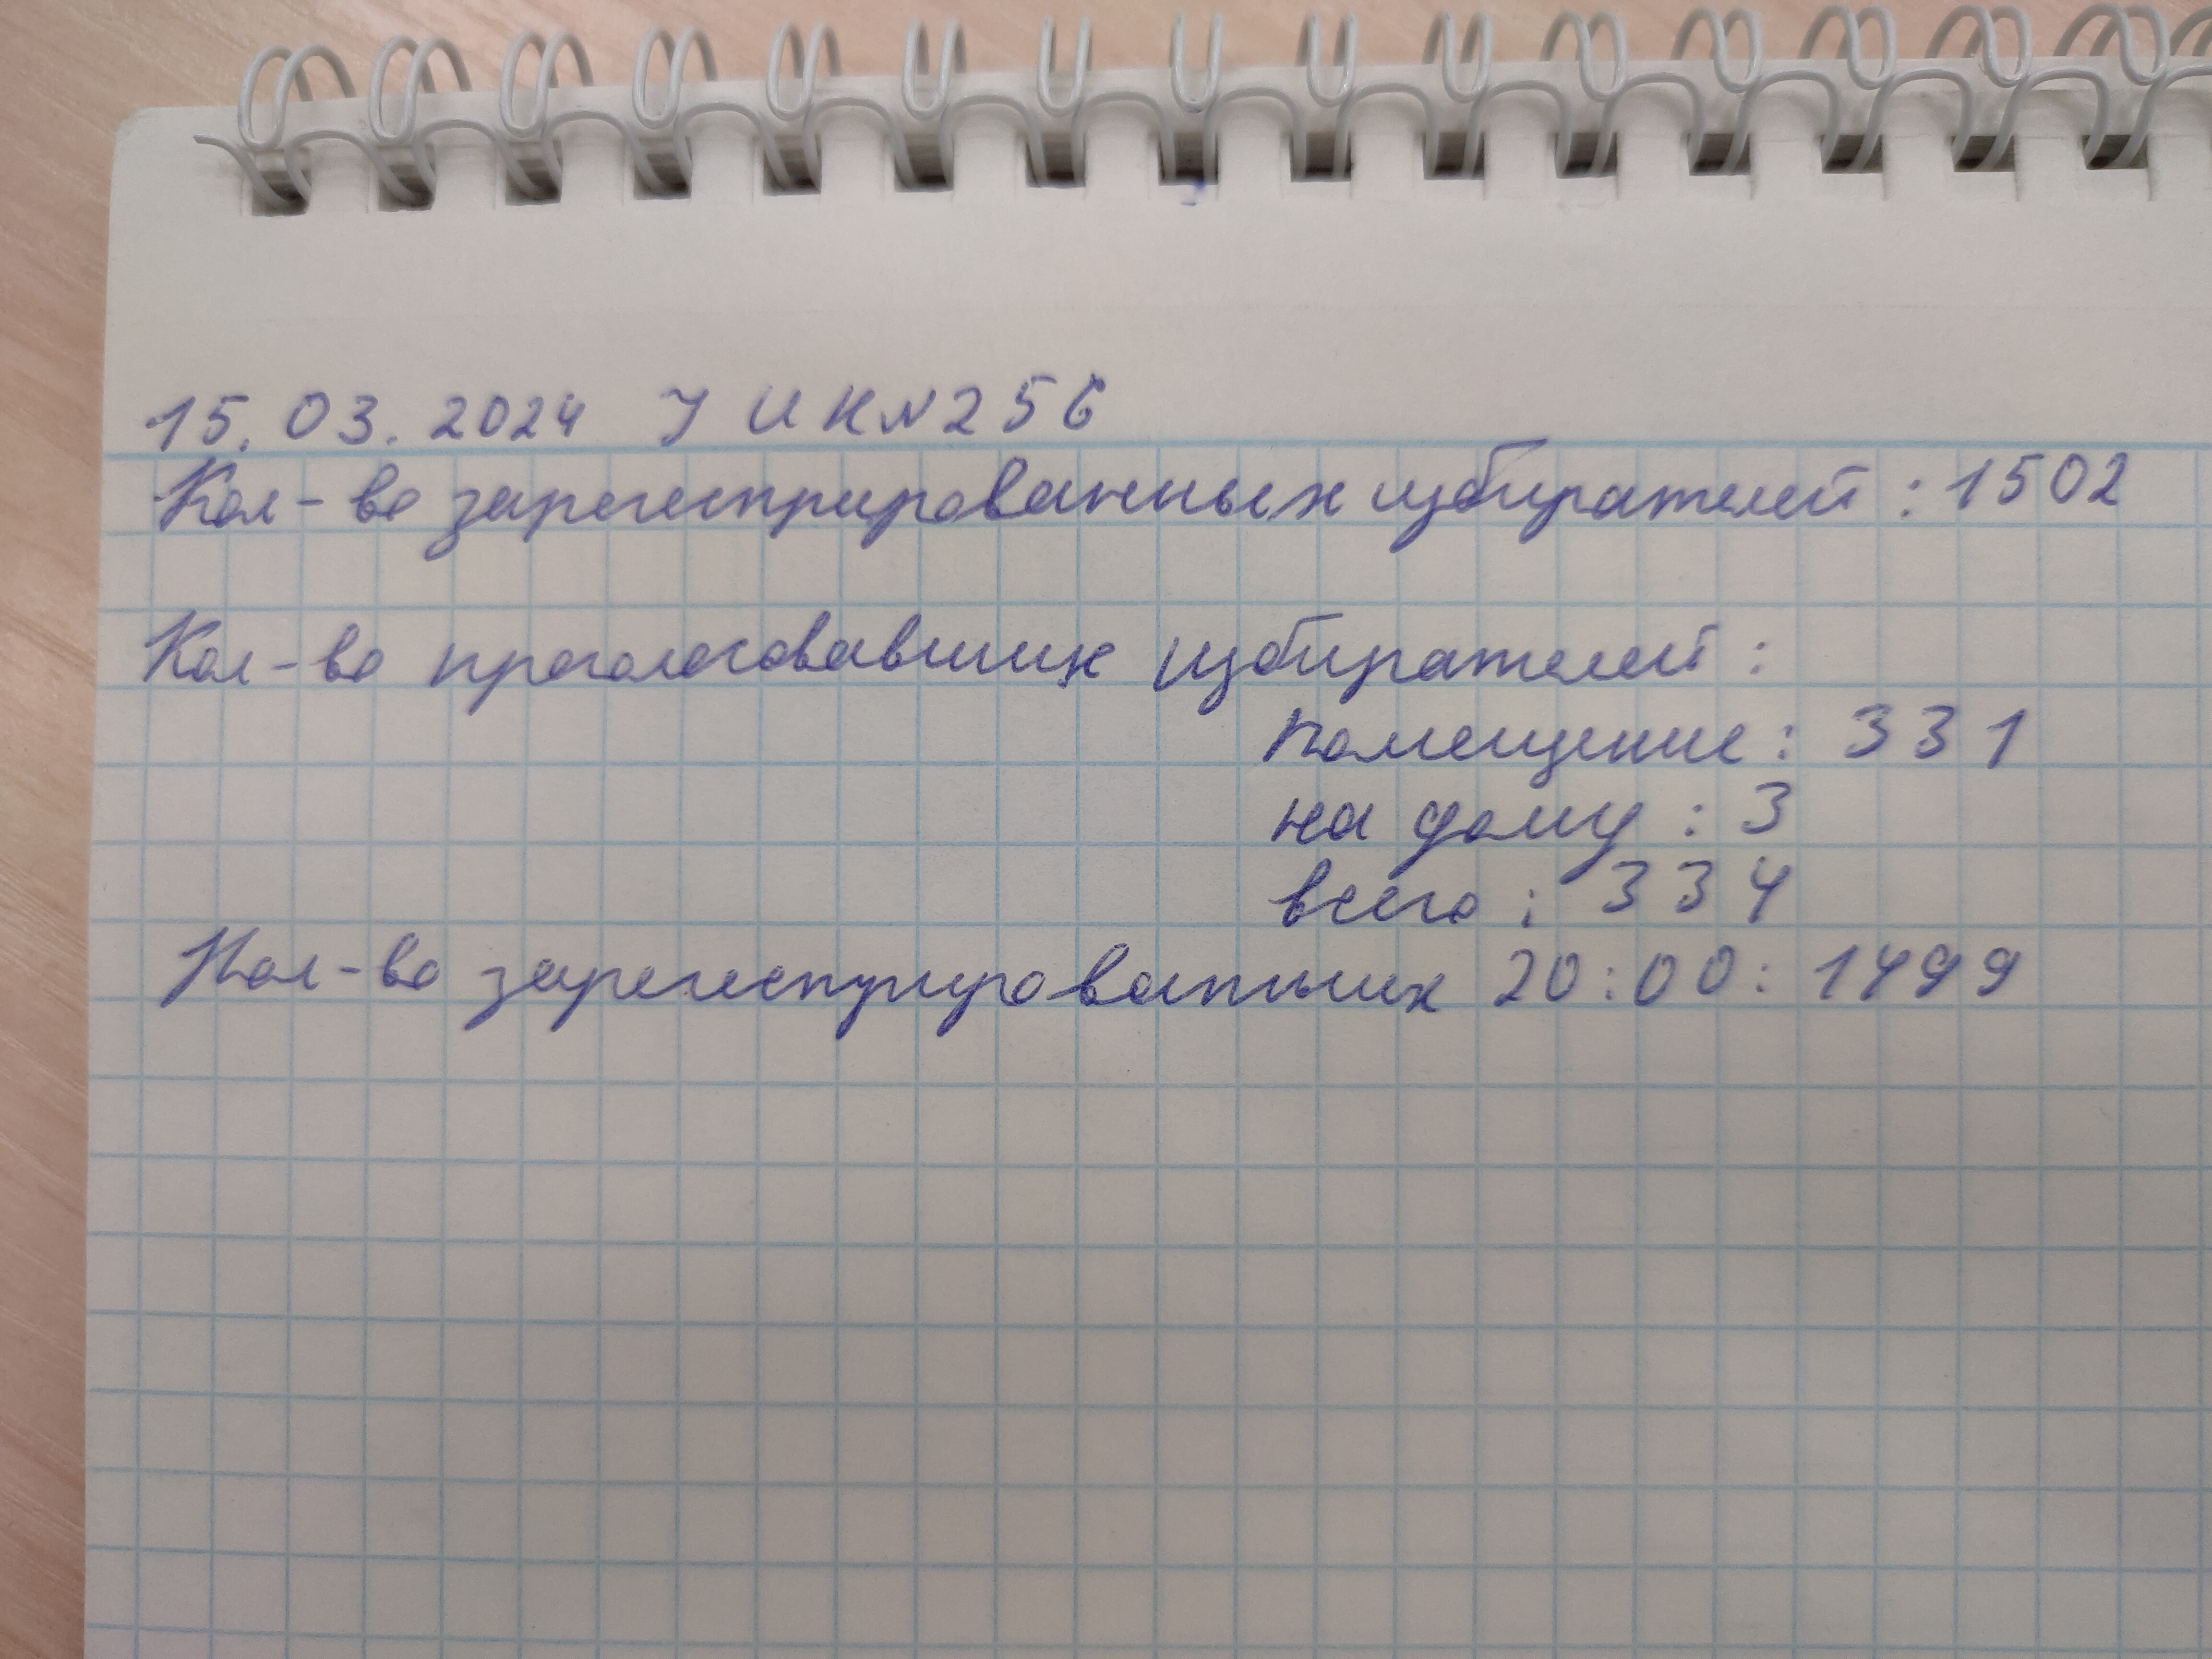 15.03.2024 УИК №256
Кол-во зарегестрированных избирателей: 1502
Кол-во проголосовавших избирателей:
помещение: 331
на дому: 3
всего: 334
Кол-во зарегестрированных 20:00: 1499